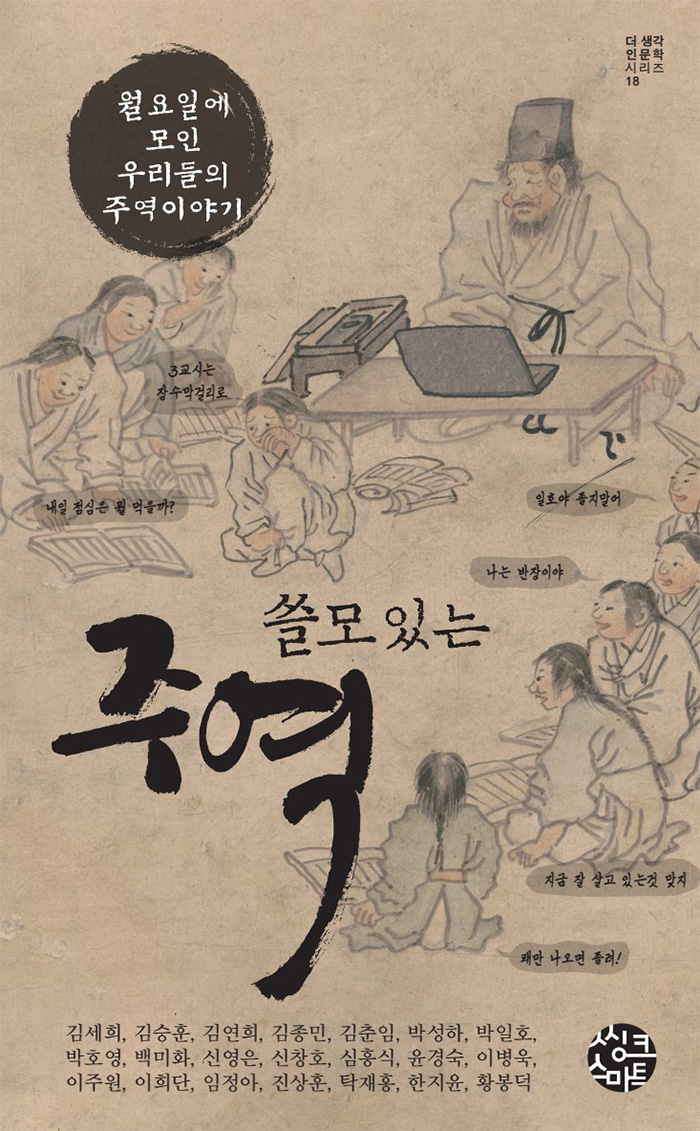 더 생각
인문학
시리즈
18
월요일에
모인
우리들의
주역이야기
3교시는
장수막걸리로
내일 점심은 뭘 먹을까?
일호야 졸지말어
나는 반장이야
쓸모 있는
주역
지금 잘 살고 있는것 맞지
괘만 나오면 졸려!
김세희, 김승훈, 김연희, 김종민, 김춘임, 박성하, 박일호,
박호영, 백미화, 신영은, 신창호, 심홍식, 윤경숙, 이병욱,
이주원, 이희단, 임정아, 진상훈, 탁재홍, 한지윤, 황봉덕
씽크
스마트